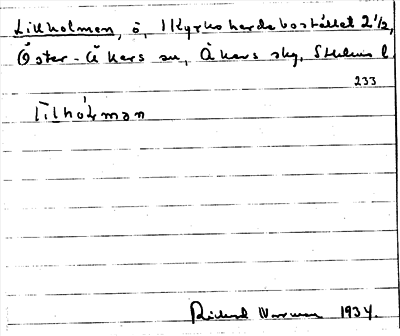 Lillholmen, ö, Kyrkoherdebostället 2 1/2,
Öster-Åkers sn, Åkers skg, Sthlms l.
233
Richard Norrman 1934.